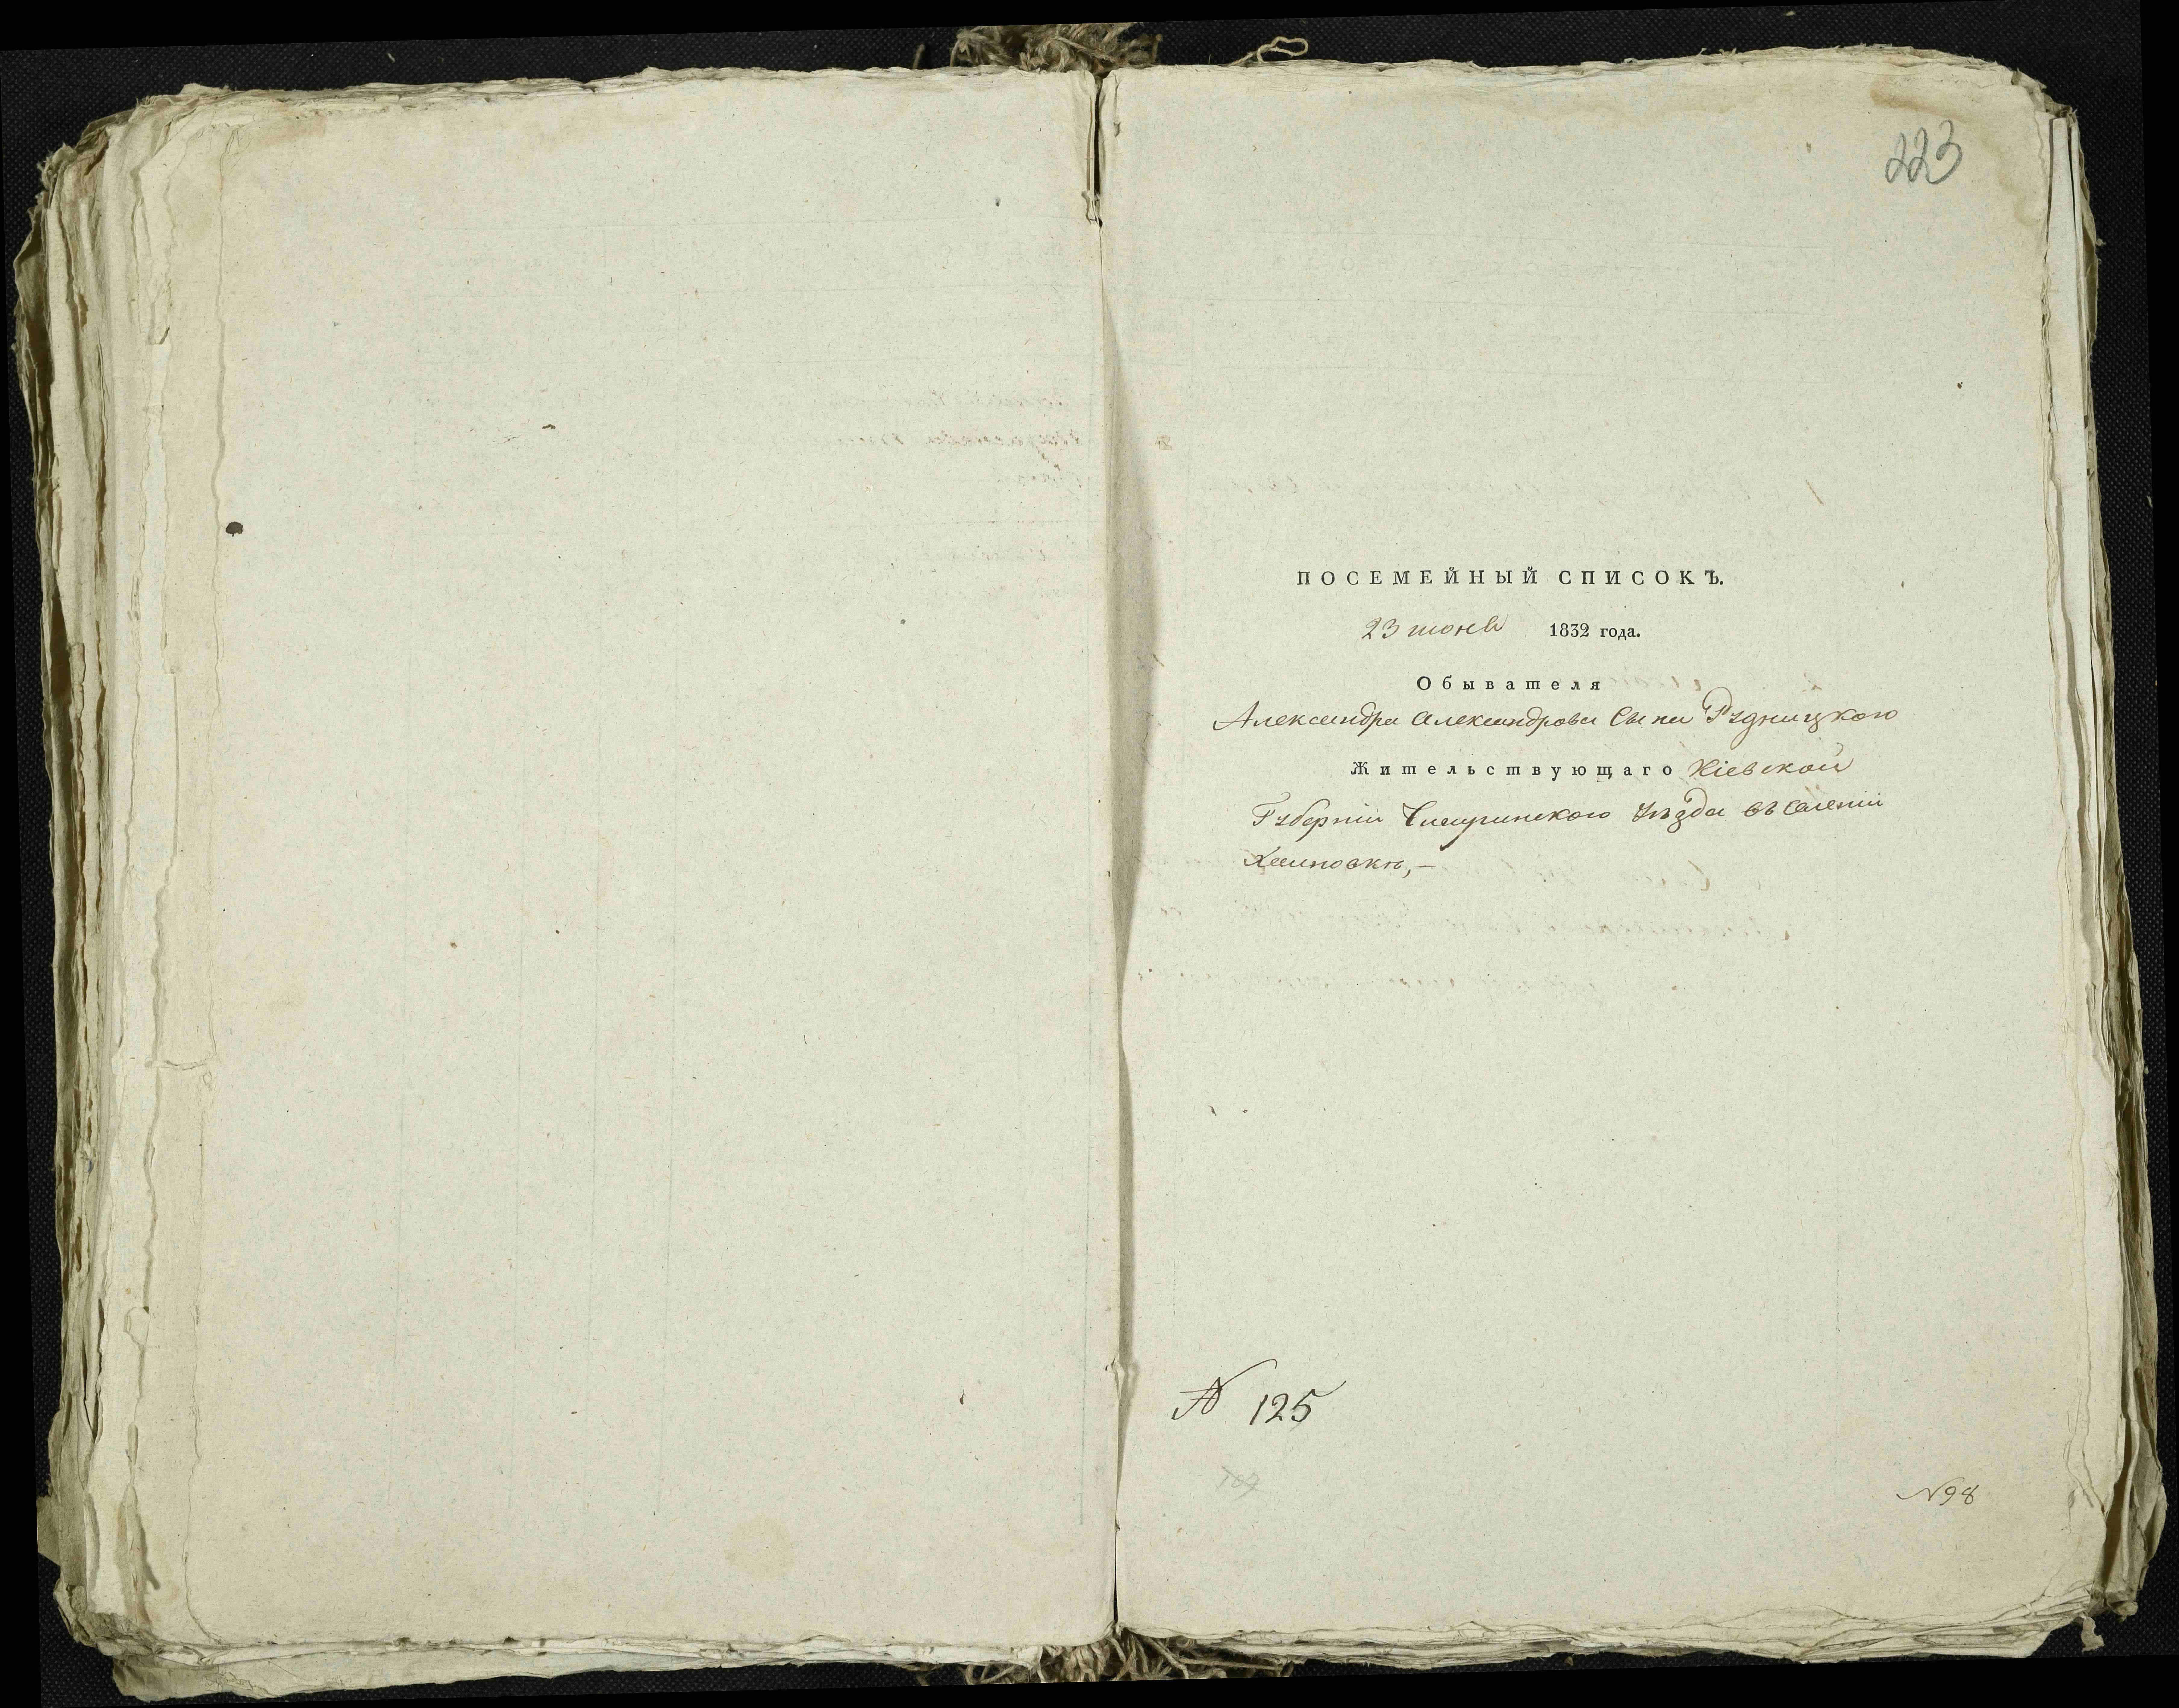 223
ПОСЕМЕЙНЫЙ СПИСОКЪ.
23 июня 1832 года.
Обывателя
Александра Александрова Сына Рудницкого
Жительствующаго Кіевской
Губерніи Чигиринского Уѣзда въ Селеніи
N 125
N 98